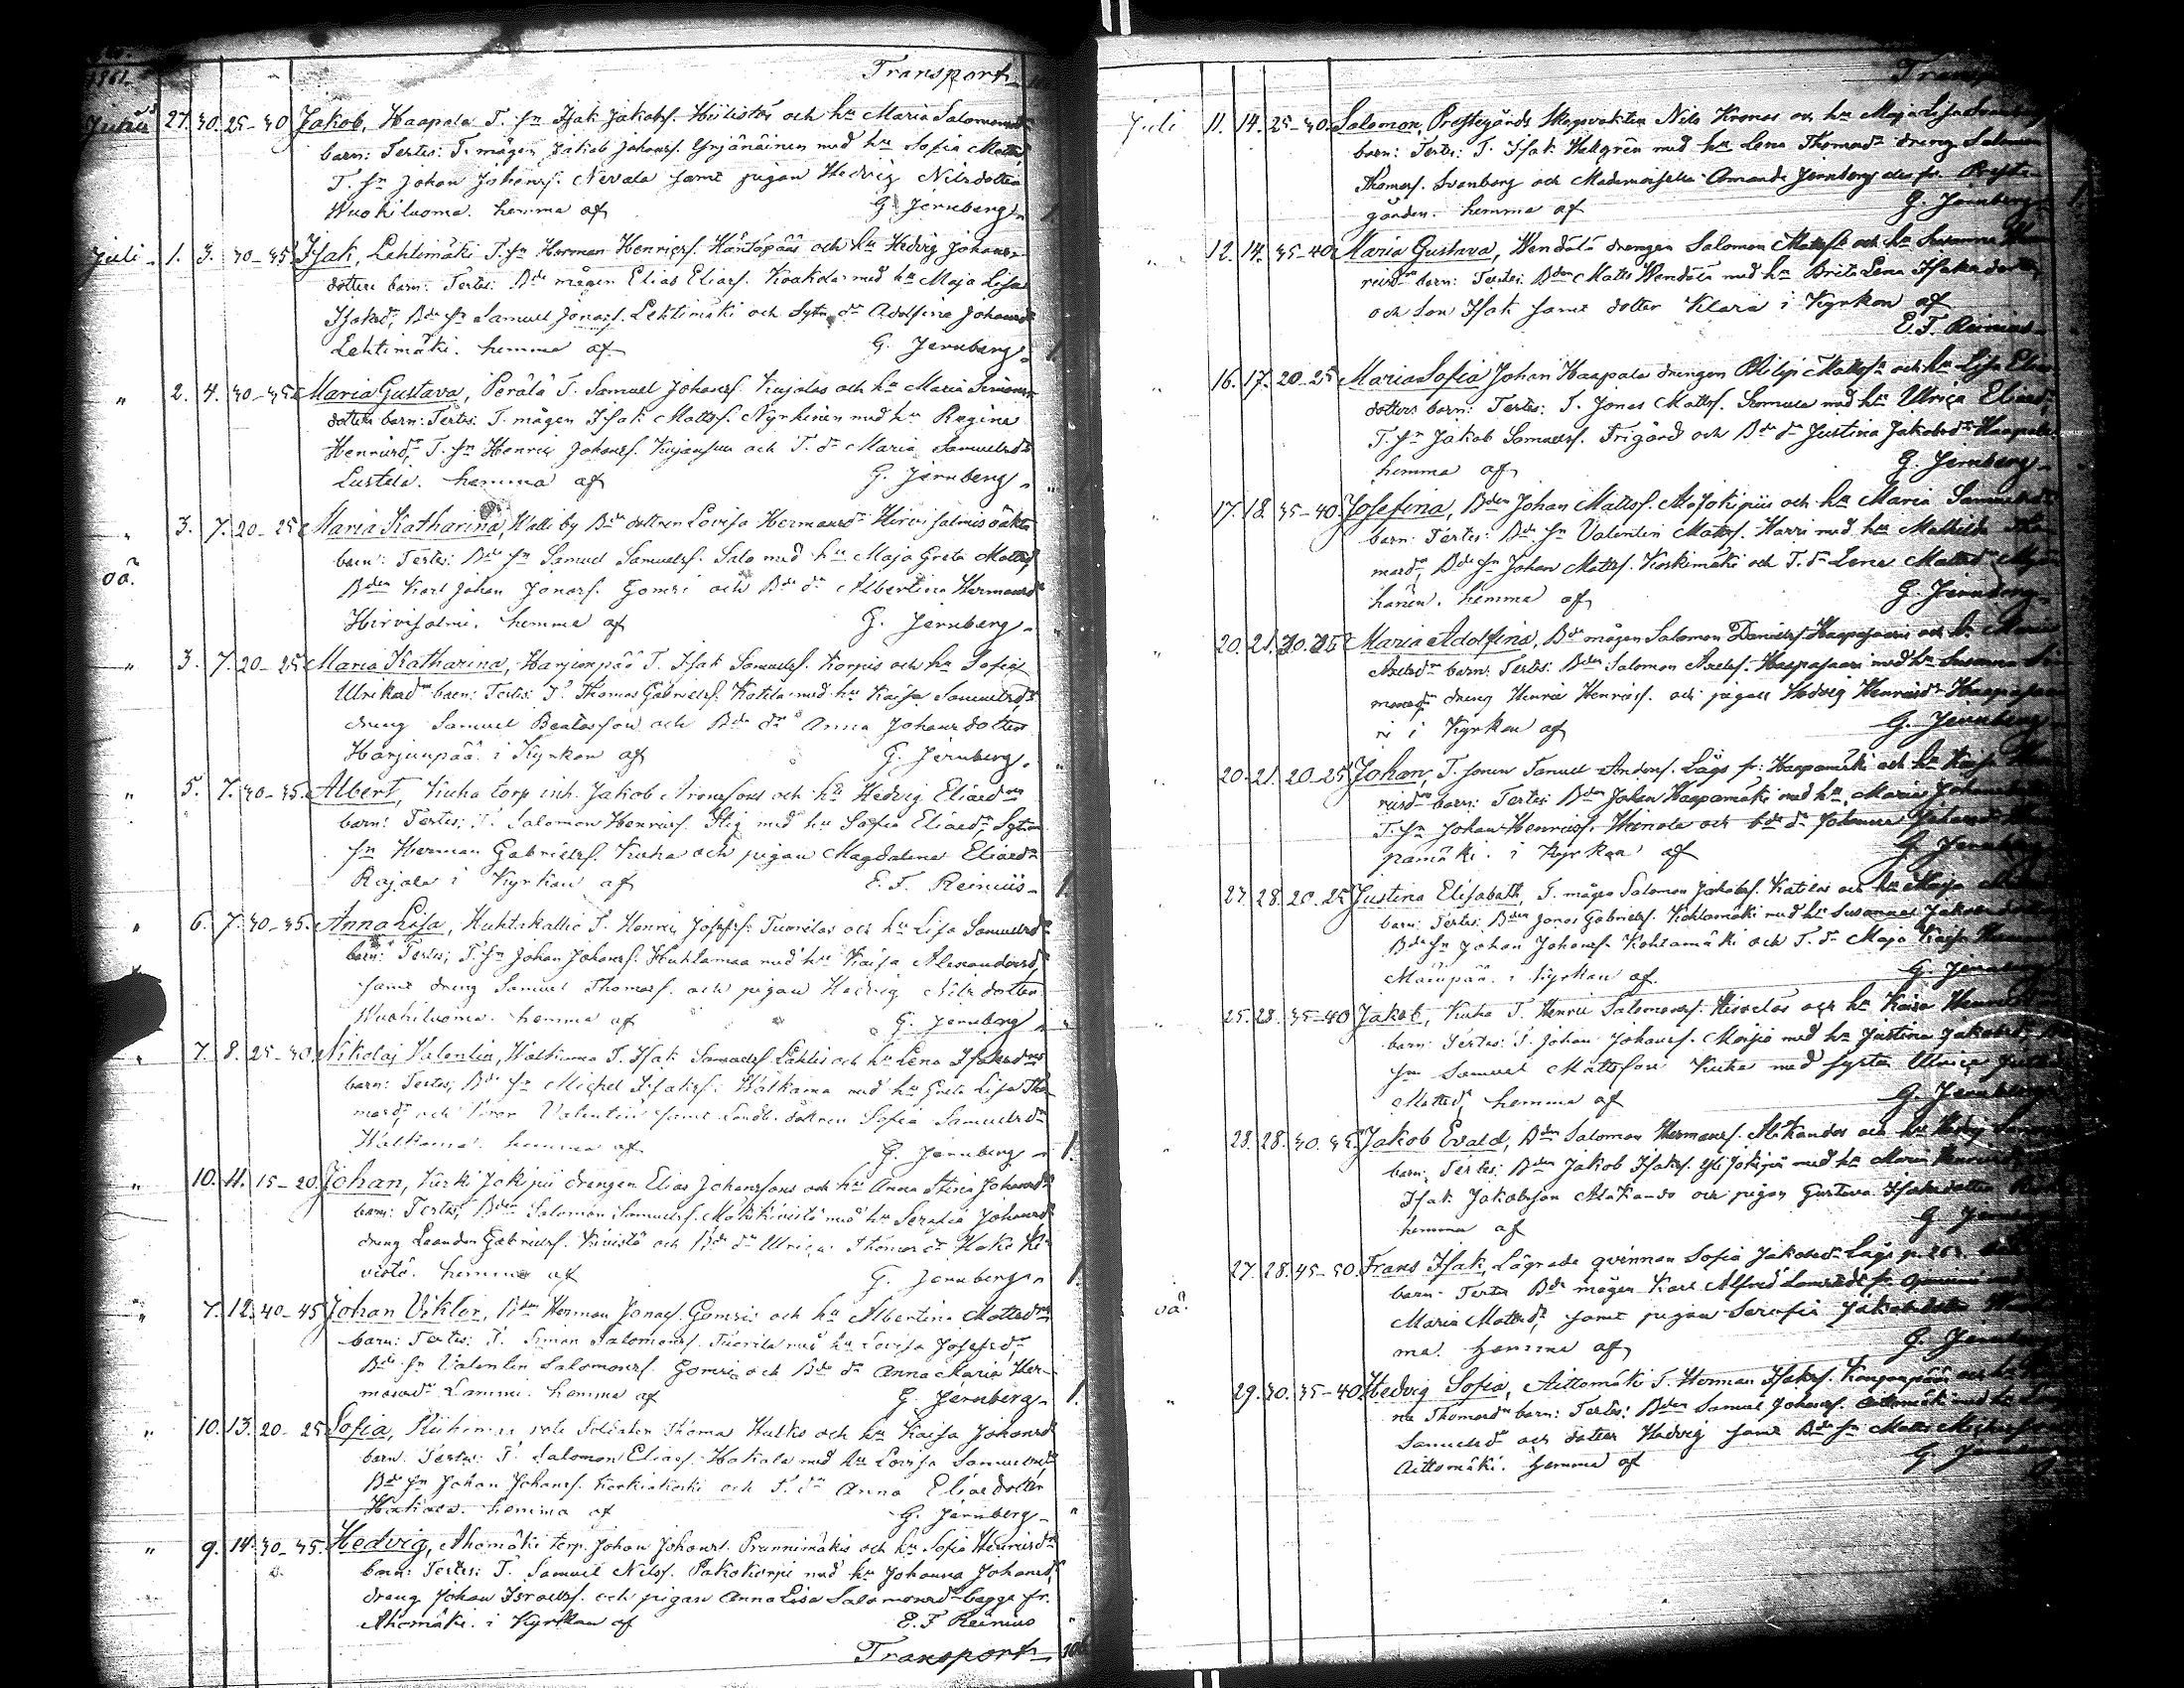 1861.
Transport
Junii 27. 30. 25-30 Jakob, Haapala T. sn Isak Jakobss. Hiilistös och hu Maria Salomonsdrs
barn: Testes: T. mågen Jakob Johanss. Yrjänäinen med hu Sofia Mattsd
T. sn Johan Johanss. Nevala samt pigan Hedvig Nilsdotter
Wuokiluoma. hemma af G. Jernberg 1.
Juli 1. 3. 30-35 Isak, Lehtimäki T. sn Herman Henrics. Häntäpääs och hu Hedvig Johans-
dotters barn: Testes: Bde mågen Elias Eliass. Koskela med hu Maja Lisa
Isaksdr, Bde sn Samuel Jonass. Lehtimäki och Sytn. dr Adolfina Johansdr
Lehtimäki. hemma af G. Jernberg 1.
" 2. 4. 30-35 Maria Gustava, Perälä T. Samuel Johanss. Kujalas och hu Maria Simons-
dotters barn: Testes: T. mågen Isak Mattss. Nyrhinen med hu Regina
Henricsdr, T. sn Henric Johanss. Kujansuu och T. dr Maria Samuelsdr
Lustila. hemma af G. Jernberg "
" 3. 7. 20-25 Maria Katharina, Walli by Bde dottren Lovisa Hermansdr Hirvisalmis oäkta
barn: Testes: Bde sn Samuel Samuelss. Salo med hu Maja Greta Mattsdr,
oä. Bden Karl Johan Jonass. Gomsi och Bde dr Albertina Hermansdr
Hirvisalmi. hemma af G. Jernberg "
" 3. 7. 20-25 Maria Katharina, Harjunpää T. Isak Samuelss. Korpis och hu Sofia
Ulriksdrs barn: Testes: T. Thomas Gabrielss. Katila med hu Kaisa Samuelsdr,
dreng Samuel Beatasson och Bde dr Anna Johansdotter
Harjunpää i Kyrkan af G. Jernberg "
" 5. 7. 30-35. Albert, Kuha torp inh. Jakob Aronssons och hu Hedvig Eliasdrs
barn: Testes: T. Salomon Henricss. Stig med hu Sofia Eliasdr, Sytn
sn Herman Gabrielss. Kuha och pigan Magdalena Eliasdr
Rajala i Kyrkan af E. F. Reinius 1.
" 6. 7. 30-35. Anna Lisa, Huhtakallio T. Henric Josefss. Tuorilas och hu Lisa Samuelsdrs
barn: Testes: T. sn Johan Johanss. Huhtamaa med hu Kaisa Alexandersdr,
samt dreng Samuel Thomass. och pigan Hedvig Nilsdotter
Wuokiluoma. hemma af G. Jernberg "
" 7. 8. 25-30 Nikolaj Valentin, Walkama T. Isak Samuelss. Lahtis och hu Lena Isaksdrs
barn: Testes: Bde sn Michel Isakss. Walkama med hu Greta Lisa Tho-
masdr, och bror Valentin samt Landb. dottren Sofia Samuelsdr
Walkama. hemma af G. Jernberg 1.
" 10. 11. 15-20. Johan, Kurki Jokipii drengen Elias Johanssons och hu Anna Stina Johansdrs
barn: Testes: Bden Salomon Samuelss. Mäkikivistö med hu Serafia Johansdr
dreng Leander Gabrielss. Kivistö och Bde dr Ulrica Thomasdr Mäki Ki-
vistö. hemma af G. Jernberg 1.
" 7. 12. 40-45 Johan Viktor, Bden Herman Jonass. Gomsis och hu Albertina Mattsdrs
barn: Testes: T. Simon Salomonss. Tuorila med hu Lovisa Josefsdr,
Bde sn Valentin Salomonss. Gomsi och Bde dr Anna Maria Her-
mansdr Lammi. hemma af G. Jernberg 1.
" 10. 13. 20-25 Sofia, Riihimaa rote Soldaten Thoma Hultis och hu Kaisa Johansdrs
barn: Testes: T. Salomon Eliass. Hakala med hu Lovisa Samuelsdr
Bde sn Johan Johanss. Koskiokoski och T. dr Anna Eliasdotter
Hakala. hemma af G. Jernberg "
" 9. 14. 30-35. Hedvig, Ahomäki torp. Johan Johanss. Prunnimäkis och hu Sofia Henricsdrs
barn: Testes: T. Samuel Nilss. Pakokorpi med hu Johanna Johansdr,
dreng Johan Israelss. och pigan Anna Lisa Salomonsdr begge fr.
Ahomäki. i Kyrkan af E. F. Reinius "
Transport
Juli 11. 14. 25-30. Salomon, Prestegårds Skogsvaktn Nils Kronos och hu Maja Lisa
barn: Testes: T. Isak Hellgrén med hu Lena Thomasdr dreng Salomon
Thomass. Svanberg och Mademoiselle Amanda Jernberg alla fr. Prest-
gården. hemma af G. Jernberg 1.
" 12. 14. 35-40 Maria Gustava, Wendälä drengen Salomon Mattss. och hu Susanna Hen-
ricsdrs barn: Testes: Bden Matts Wendälä med hu Brita Lena Isaksdotter
och son Isak samt dotter Klara i Kyrkan af
E. F. Reinius
" 16. 17. 20-25 Maria Sofia Johan Haapala drengen Philip Mattss. och hu Lisa Elias-
dotters barn: Testes: T. Jonas Mattss. med hu Ulrica Eliasdr,
T. sn Jakob Samuelss. Frigård och Bde dr Justina Jakobsdr Haapala
hemma af G. Jernberg
17. 18. 35-40 Josefina, Bden Johan Mattss. Ala Jokipiis och hu Maria Samuelsdrs
barn: Testes: Bde sn Valentin Mattss. Harri med hu Mathilda Tho-
masdr, Bde sn Johan Mattss. Koskimäki och T. dr Lena Mattsdr
hemma af G. Jernberg
" 20. 21. 20-25 Maria Adolfina, Bde mågen Salomon Danielss. Haapasaaris och hu Maria
Axelsdrs barn: Testes: Bden Salomon Axelss. Haapasaari med hu Susanna Si-
monsdr dreng Henric Henricss. och pigan Hedvig Henricsdr Haapasaa-
ri i Kyrkan af G. Jernberg
20. 21. 20-25 Johan, T. sonen Samuel Anderss. Lågs fr. Haapamäki och hu Kaisa Hen-
ricsdrs barn: Testes: Bden Johan Haapamäki med hu Maria
T. sn Johan Henricss. Heinola och Bde dr Johanna Johansdr Haa-
pamäki. i Kyrkan af G. Jernberg
27. 28. 20-25 Justina Elisabath, T. mågen Salomon Jakobss. Katilas och hu Maja
barn: Testes: Bden Jonas Gabrielss. Kohtamäki med hu Susanna Jakobsdotter
Bde sn Johan Johanss. Kohtamäki och T. dr Maja Kaisa
Mäenpää. i Kyrkan af G. Jernberg
" 25. 28. 35-40 Jakob, Kuha T. Henric Salomonss. Hirvelas och hu Kaisa
barn: Testes: T. Johan Johanss. Moisio med hu Justina Jakobsdr
sn Samuel Mattsson Kuha med syster Ulrica
Mattsdr, hemma af G. Jernberg
" 28. 28. 30-35 Jakob Evald, Bden Salomon Hermanss. Ala Kandos och hu Hedvig
barn: Testes: Bden Jakob Isakss. Yli Jokipii med hu Maria Henricsdr
Isak Jakobsson Ala Kando och pigan Gustava Isaksdotter
hemma af G. Jernberg
27. 28. 45-50. Frans Isak, Lägrade qvinnan Sofia Jakobsdr Lågs
oä. barn. Testes Bde mågen Karl Alfred
Maria Mattsdr, samt pigan Serafia Jakobsdotter
ma. hemma af G. Jernberg
" 29. 30. 35-40 Hedvig Sofia, Aittomäki T. Herman Isakss. Kangaspääs och hu
na Thomasdrs barn: Testes: Bden Samuel Johanss. Aittomäki med hu
Samuelsdr och dotter Hedvig samt Bde sn Matts
Aittomäki. hemma af G. Jernberg